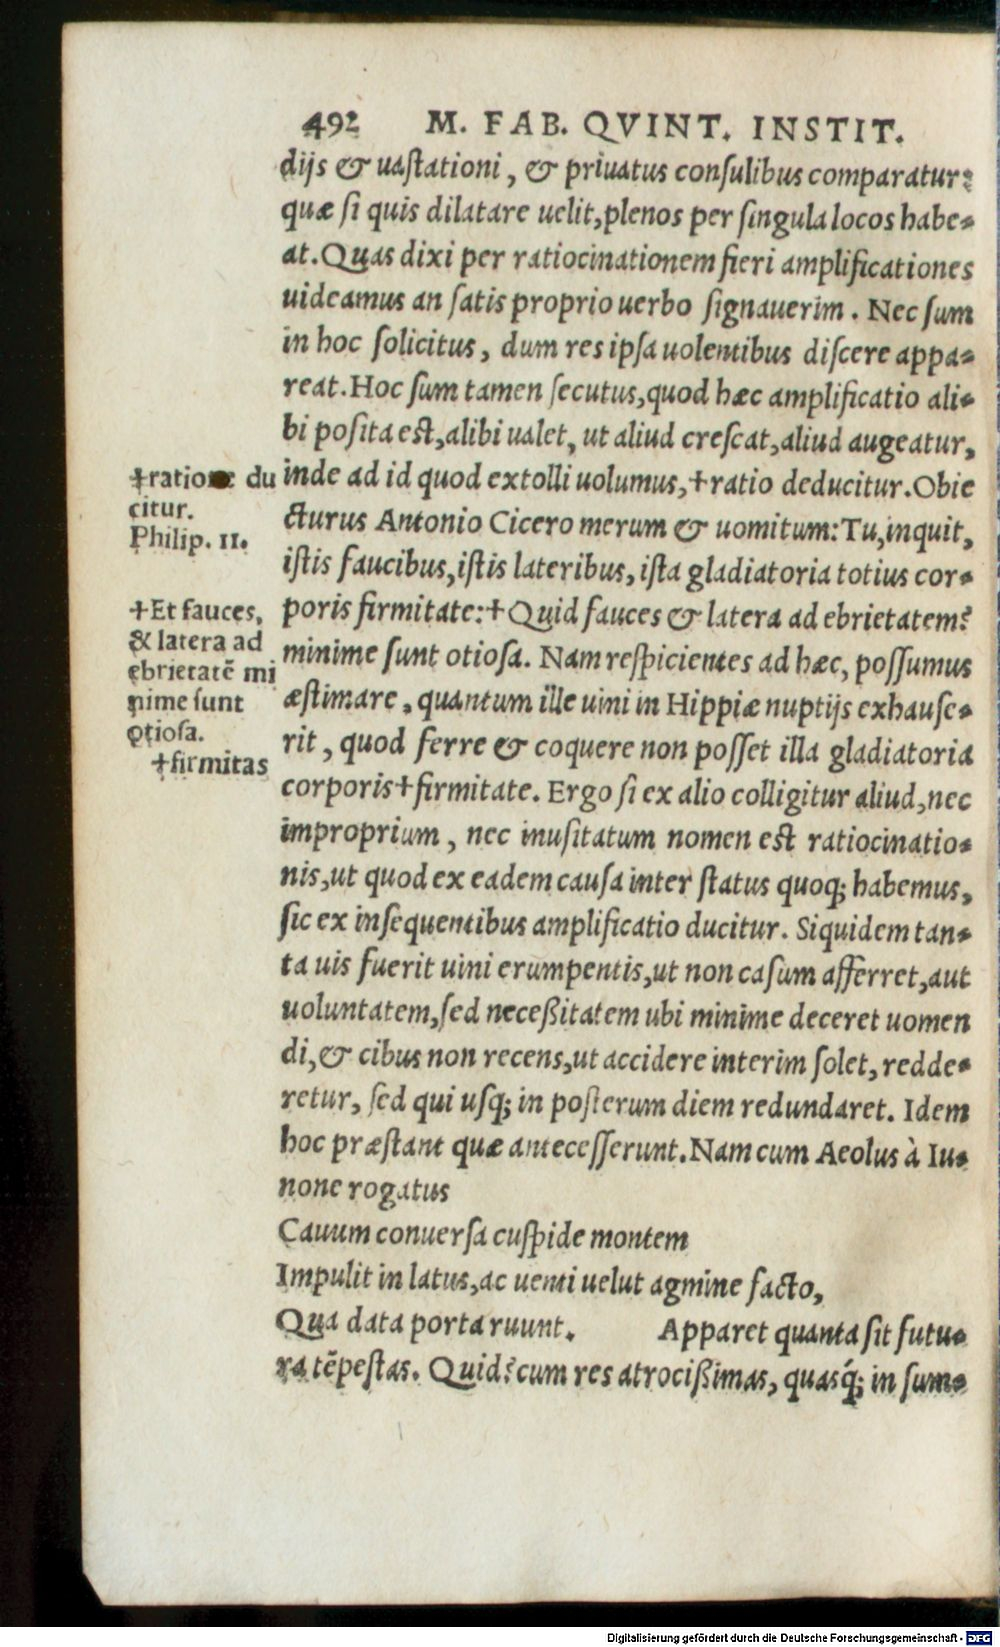 492 M. FAB. QVINT. INSTIT.
dijs & uastationi, & priuatus consulibus comparatur:
quæ si quis dilatare uelit, plenos per singula locos habe-
at. Quas dixi per ratiocinationem fieri amplificationes
uideamus an satis proprio uerbo signauerim. Nec sum
in hoc solicitus, dum res ipsa uolentibus discere appa-
reat. Hoc sum tamen secutus, quod hæc amplificatio ali-
bi posita est, alibi ualet, ut aliud crescat, aliud augeatur,
inde ad id quod extolli uolumus, †ratio deducitur. Obie
cturus Antonio Cicero merum & uomitum: Tu, inquit,
istis faucibus, istis lateribus, ista gladiatoria totius cor-
poris firmitate: †Quid fauces & latera ad ebrietatem?
minime sunt otiosa. Nam respicientes ad hæc, possumus
æstimare, quantum ille uini in Hippiæ nuptijs exhause-
rit, quod ferre & coquere non posset illa gladiatoria
corporis †firmitate. Ergo si ex alio colligitur aliud, nec
improprium, nec inusitatum nomen est ratiocinatio-
nis, ut quod ex eadem causa inter status quoq; habemus,
sic ex insequentibus amplificatio ducitur. Siquidem tan-
ta uis fuerit uini erumpentis, ut non casum afferret, aut
uoluntatem, sed neceßitatem ubi minime deceret uomen
di, & cibus non recens, ut accidere interim solet, redde-
retur, sed qui usq; in posterum diem redundaret. Idem
hoc præstant quæ antecesserunt. Nam cum Aeolus à Iu-
none rogatus
Cauum conuersa cuspide montem
Impulit in latus, ac uenti uelut agmine facto,
Qua data porta ruunt. Apparet quanta sit futu-
ra tẽpestas. Quid? cum res atrocißimas, quasq́; in sum-
†ratione du
citur.
Philip. II.
†Et fauces,
& latera ad
ebrietatẽ mi
nime sunt
otiosa.
†firmitas
Digitalisierung gefördert durch die Deutsche Forschungsgemeinschaft - DFG